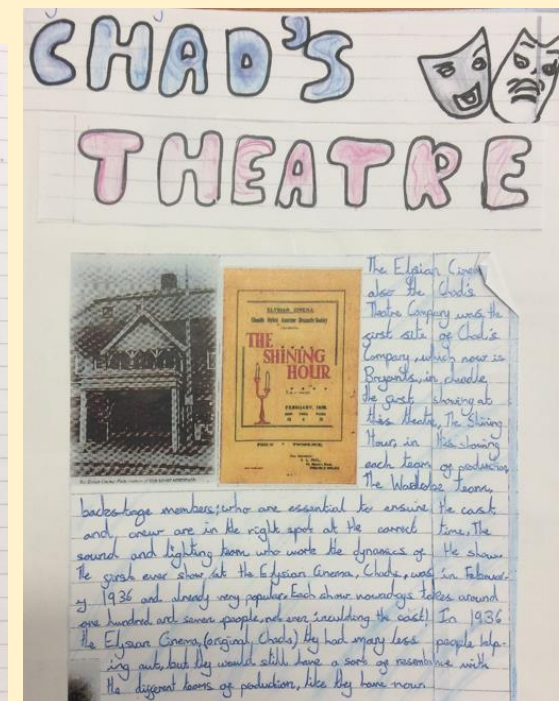 CHAD'S
THEATRE
ELYSIAN CINEMA
THE
SHINING
HOUR
FEBRUARY, 1936
The Elysian Cinema
also the Chad's
Theatre Company was the
first site of Chad's
Company, which now is
Bryants, in cheadle
the first showing at
this theatre, The Shining
Hour, in this showing
each team of production,
The Wardrobe team,
backstage members; who are essential to ensure the cast
and crew are in the right spot at the correct time, The
sound and lighting team who work the dynamics of the show.
The first ever show (at the Elysian Cinema, Chads, was in Februar-
y 1936 and already very popular. Each show nowadays takes around
one hundred and seven people, not even inculding the cast! In 1936
the Elysian Cinema, (original Chads) they had many less people help-
ing out, but they would still have a sort of with
the different teams of production, like they have now.